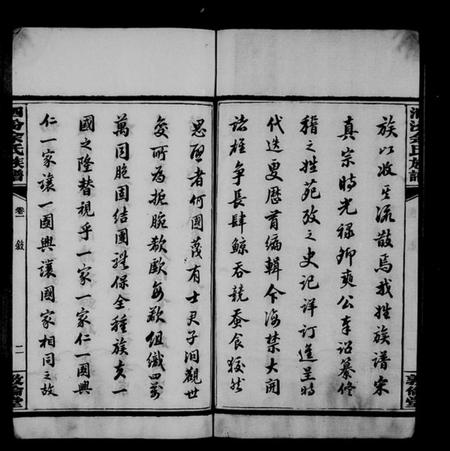 族以收至流散焉我姓族譜宋
真宗時光祿卿奭公奉詔纂修
稽之姓苑攷之史記詳訂進呈時
代迭更歷首編輯今海禁大開
諸桂爭長肆鯨吞競蚕食狡然
思啓者何國蔑有士君子洞觀世
變所為扼腕欷歔每欲組織四萬
萬同胞固結團體保全種族夫一
國之隆替視乎一家一家仁一國興
仁一家讓一國興讓國家相同之故
氏族譜
卷一
敘
二
敦倫堂